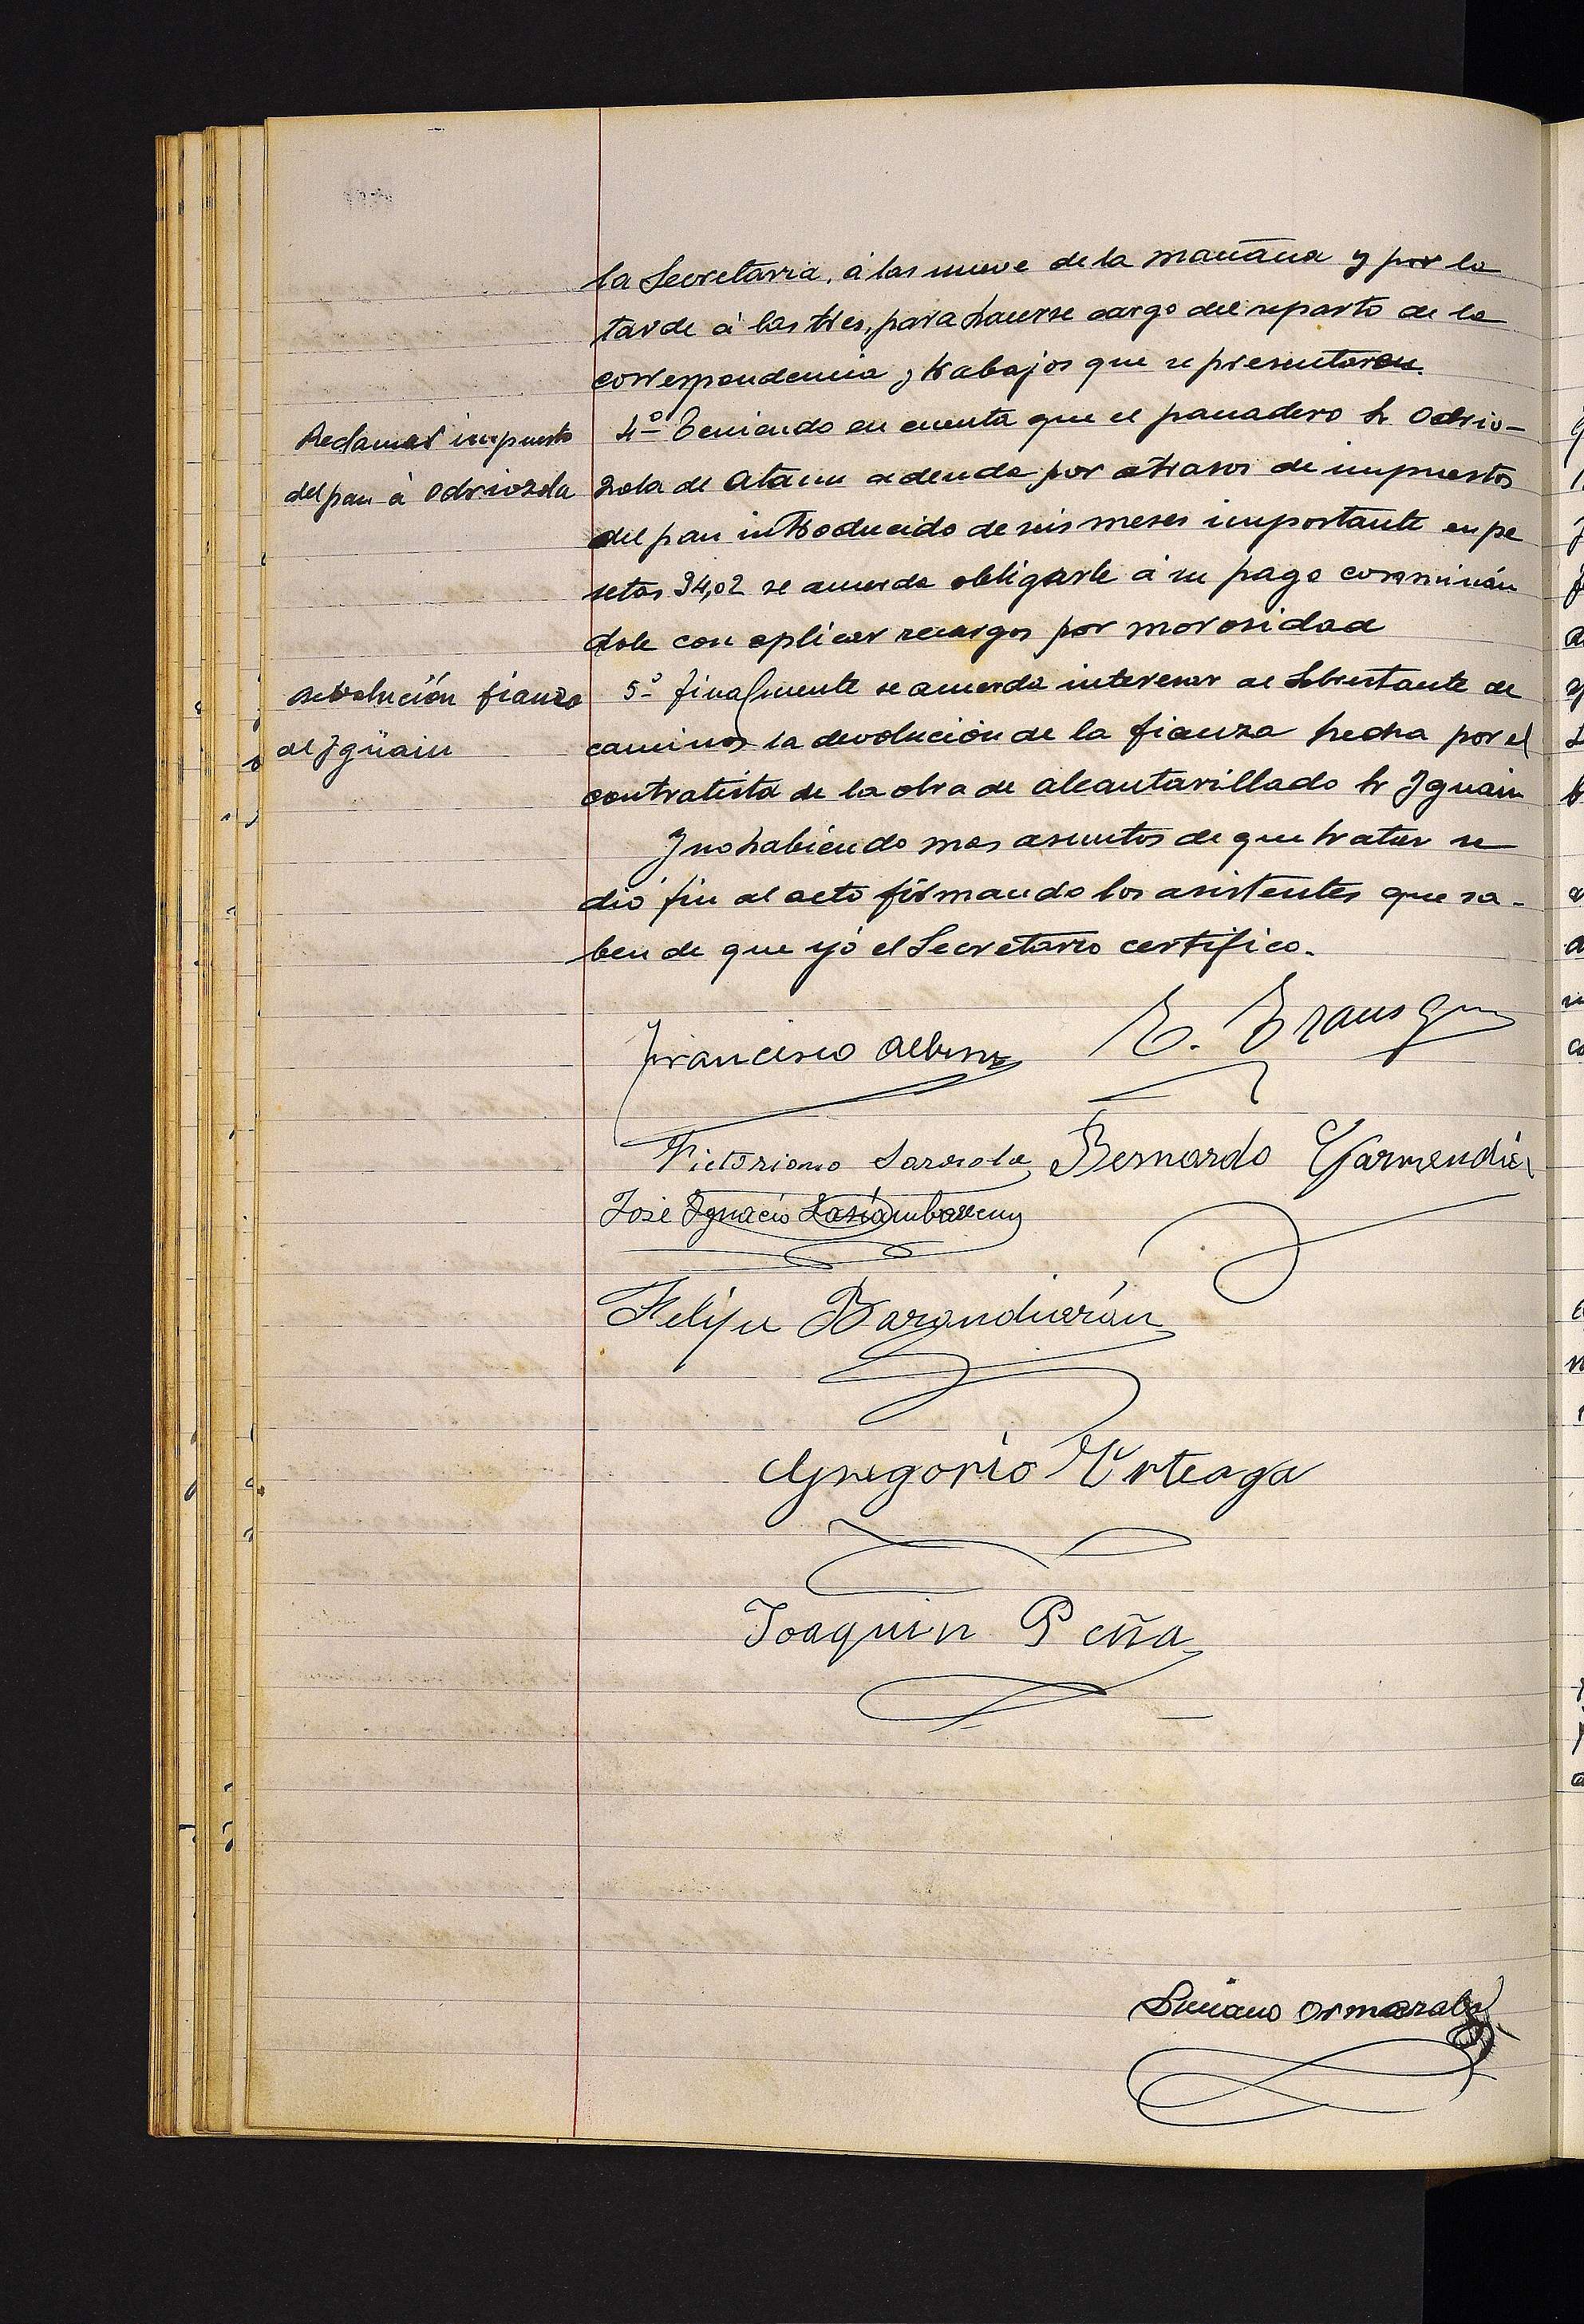 la Secretaria, á las nueve de la mañana y por la
tarde á las tres, para hacerse cargo del reparto de la
correspondencia y trabajos que se presentaren.
Reclamar impuesto
del pan á Odriozola
4º Teniendo en cuenta que el panadero Sr Odrio-
zola de Ataun adeuda por atrasos de impuestos
del pan introducido de seis meses importante en pe
setas 94,02 se acuerda obligarle á su pago conminán
dole con aplicar recargos por morosidad
devolución fianza
al Igüain
5º finalmente se acuerda interesar al Sobrestante de
caminos la devolución de la fianza hecha por el
contratista de la obra de alcantarillado Sr Iguain
Y no habiendo mas asuntos de que tratar se
dió fin al acto firmando los asistentes que sa-
ben de que yó el Secretario certifico.
Francisco
E.
Victoriano
Bernardo Garmendia
José Ignacio
Felipe Barandiarán
Gregorio Urteaga
Joaquin Peña